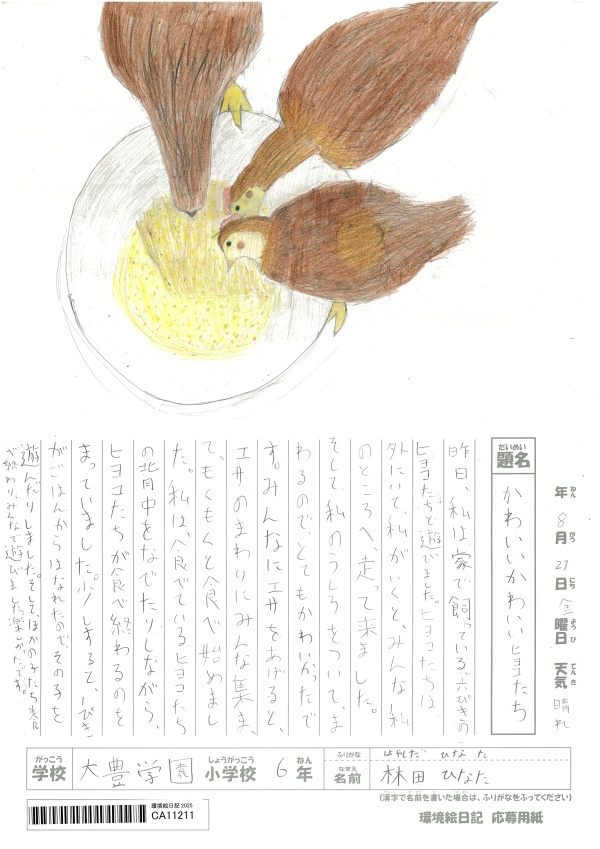 年 8月 23日 金曜日 天気 晴れ
ねん がつ にち ようび てんき
題名 かわいいかわいいヒヨコたち
だいめい
昨日、私は家で飼っている、六ぴきの
ヒヨコたちと遊びました。ヒヨコたちは、
外にいて、私がいくと、みんな私
のところへ走って来ました。
そして、私のうしろをついて、ま
わるので、とてもかわいかったで
す。みんなにエサをあげると、
エサのまわりにみんな集ま
て、もくもくと食べ始めまし
た。私は、食べているヒヨコたち
の背中をなでたりしながら、
ヒヨコたちが食べ終わるのを
まっていました。少しすると、一ぴき
がごはんからはなれたので、その子を
遊んだりしました。そしてほかの子たち
で終わり、みんなで遊びました。楽しかったです。
がっこう しょうがっこう ねん
学校 大豊学園 小学校 6年
ふりがな はやしだ ひなた
なまえ
名前 林田 ひなた
(漢字で名前を書いた場合は、ふりがなをふってください)
環境絵日記 2025
CA11211
環境絵日記 応募用紙